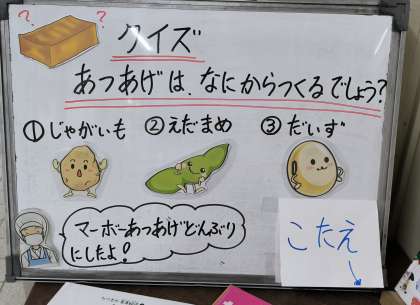 ? ?
クイズ
あつあげは、なにからつくるでしょう?
①じゃがいも ②えだまめ ③だいず
マーボーあつあげどんぶり
にしたよ!
こたえ